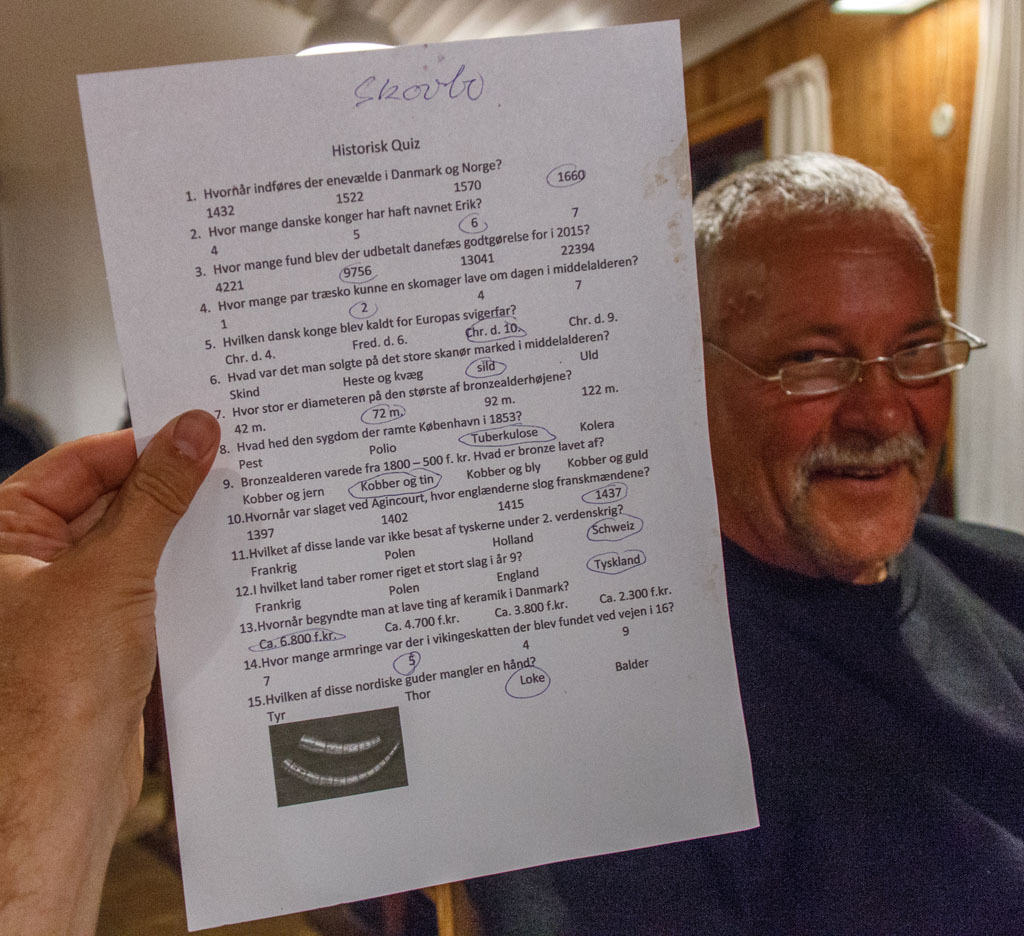 Skovbo
Historisk Quiz
1. Hvornår indføres der enevælde i Danmark og Norge?
1432 1522 1570 1660
2. Hvor mange danske konger har haft navnet Erik?
4 5 6 7
3. Hvor mange fund blev der udbetalt danefæs godtgørelse for i 2015?
4221 9756 13041 22394
4. Hvor mange par træsko kunne en skomager lave om dagen i middelalderen?
1 2 4 7
5. Hvilken dansk konge blev kaldt for Europas svigerfar?
Chr. d. 4. Fred. d. 6. Chr. d. 10. Chr. d. 9.
6. Hvad var det man solgte på det store skanør marked i middelalderen?
Skind Heste og kvæg sild Uld
7. Hvor stor er diameteren på den største af bronzealderhøjene?
42 m. 72 m. 92 m. 122 m.
8. Hvad hed den sygdom der ramte København i 1853?
Pest Polio Tuberkulose Kolera
9. Bronzealderen varede fra 1800 – 500 f. kr. Hvad er bronze lavet af?
Kobber og jern Kobber og tin Kobber og bly Kobber og guld
10. Hvornår var slaget ved Agincourt, hvor englænderne slog franskmændene?
1397 1402 1415 1437
11. Hvilket af disse lande var ikke besat af tyskerne under 2. verdenskrig?
Frankrig Polen Holland Schweiz
12. I hvilket land taber romer riget et stort slag i år 9?
Frankrig Polen England Tyskland
13. Hvornår begyndte man at lave ting af keramik i Danmark?
Ca. 6.800 f.kr. Ca. 4.700 f.kr. Ca. 3.800 f.kr. Ca. 2.300 f.kr.
14. Hvor mange armringe var der i vikingeskatten der blev fundet ved vejen i 16?
7 5 4 9
15. Hvilken af disse nordiske guder mangler en hånd?
Tyr Thor Loke Balder